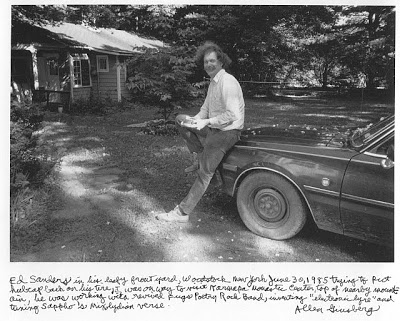 Ed Sanders in his leafy front yard, Woodstock, New York June 30, 1985 trying to put
hubcap back on his tire, I was on way to visit Karmapa Monastic Center, top of nearby mount-
ain, he was working with revived Fugs Poetry Rock Band, inventing "electronic lyre" and
tuning Sappho's Mixlydian verse.
Allen Ginsberg